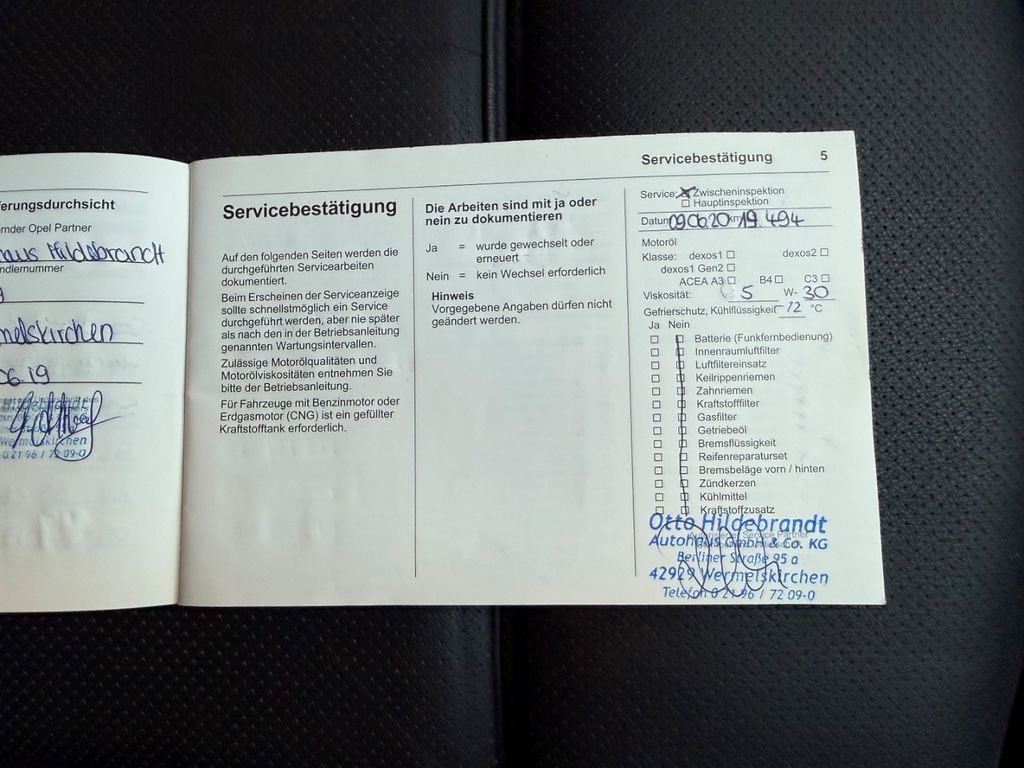 ferungsdurchsicht
rnder Opel Partner
haus Hildebrandt
ndlernummer
melskirchen
06.19
Wermelskirchen
0 21 96 / 72 09-0
Servicebestätigung 5
Servicebestätigung
Auf den folgenden Seiten werden die
durchgeführten Servicearbeiten
dokumentiert.
Beim Erscheinen der Serviceanzeige
sollte schnellstmöglich ein Service
durchgeführt werden, aber nie später
als nach den in der Betriebsanleitung
genannten Wartungsintervallen.
Zulässige Motorölqualitäten und
Motorölviskositäten entnehmen Sie
bitte der Betriebsanleitung.
Für Fahrzeuge mit Benzinmotor oder
Erdgasmotor (CNG) ist ein gefüllter
Kraftstofftank erforderlich.
Die Arbeiten sind mit ja oder
nein zu dokumentieren
Ja = wurde gewechselt oder
erneuert
Nein = kein Wechsel erforderlich
Hinweis
Vorgegebene Angaben dürfen nicht
geändert werden.
Service: Zwischeninspektion
Hauptinspektion
Datum 09.06.20 km 19.494
Motoröl
Klasse: dexos1 dexos2
dexos1 Gen2
ACEA A3 B4 C3
Viskosität: 5 W- 30
Gefrierschutz, Kühlflüssigkeit -12 °C
Ja Nein
Batterie (Funkfernbedienung)
Innenraumluftfilter
Luftfiltereinsatz
Keilrippenriemen
Zahnriemen
Kraftstofffilter
Gasfilter
Getriebeöl
Bremsflüssigkeit
Reifenreparaturset
Bremsbeläge vorn / hinten
Zündkerzen
Kühlmittel
Kraftstoffzusatz
Otto Hildebrandt
Autohaus GmbH & Co. KG
Berliner Straße 95 a
42929 Wermelskirchen
Telefon 0 21 96 / 72 09-0